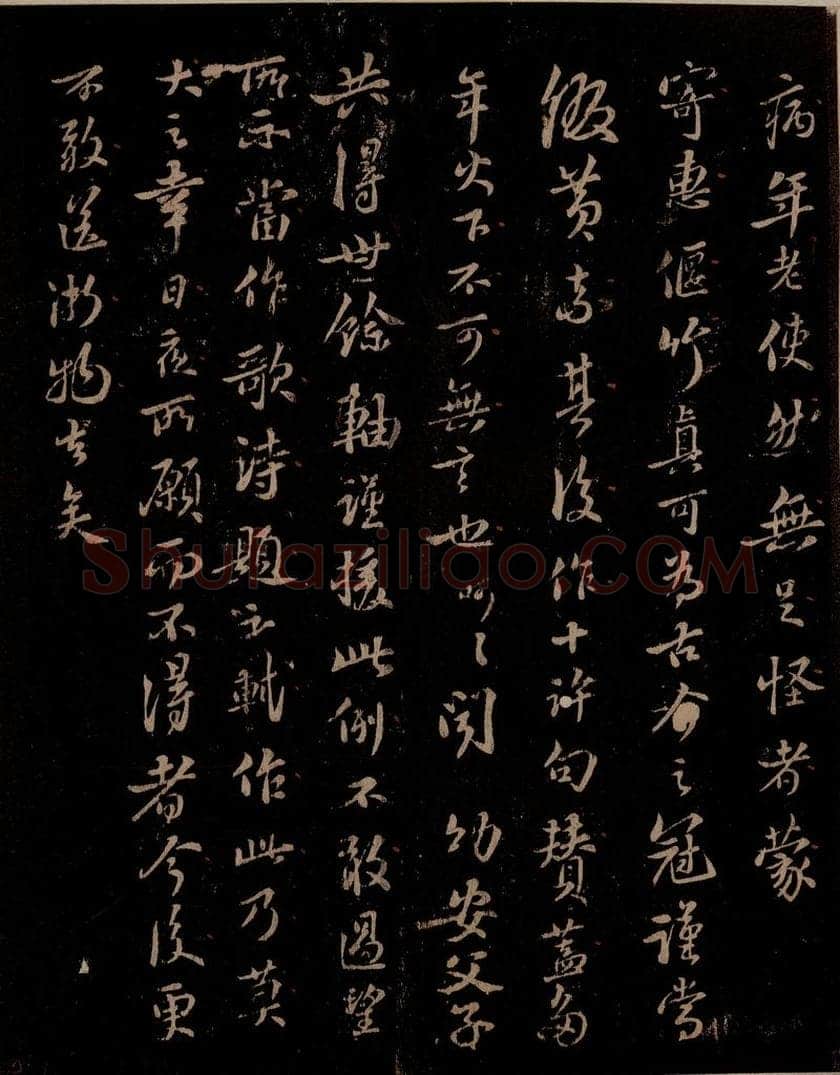 病年老使然無足怪者蒙
寄惠偃竹真可為古今之冠謹當
綴黄素其後作十許句贊蓋多
年火下不可無言也呵〻聞幼安父子
共得丗餘軸謹援此例不敢過望
所示當作歌詩題之軾作此乃莫
大之幸日夜所願而不得者今後更
不敢送浙物去矣
Shufaziliao.COM